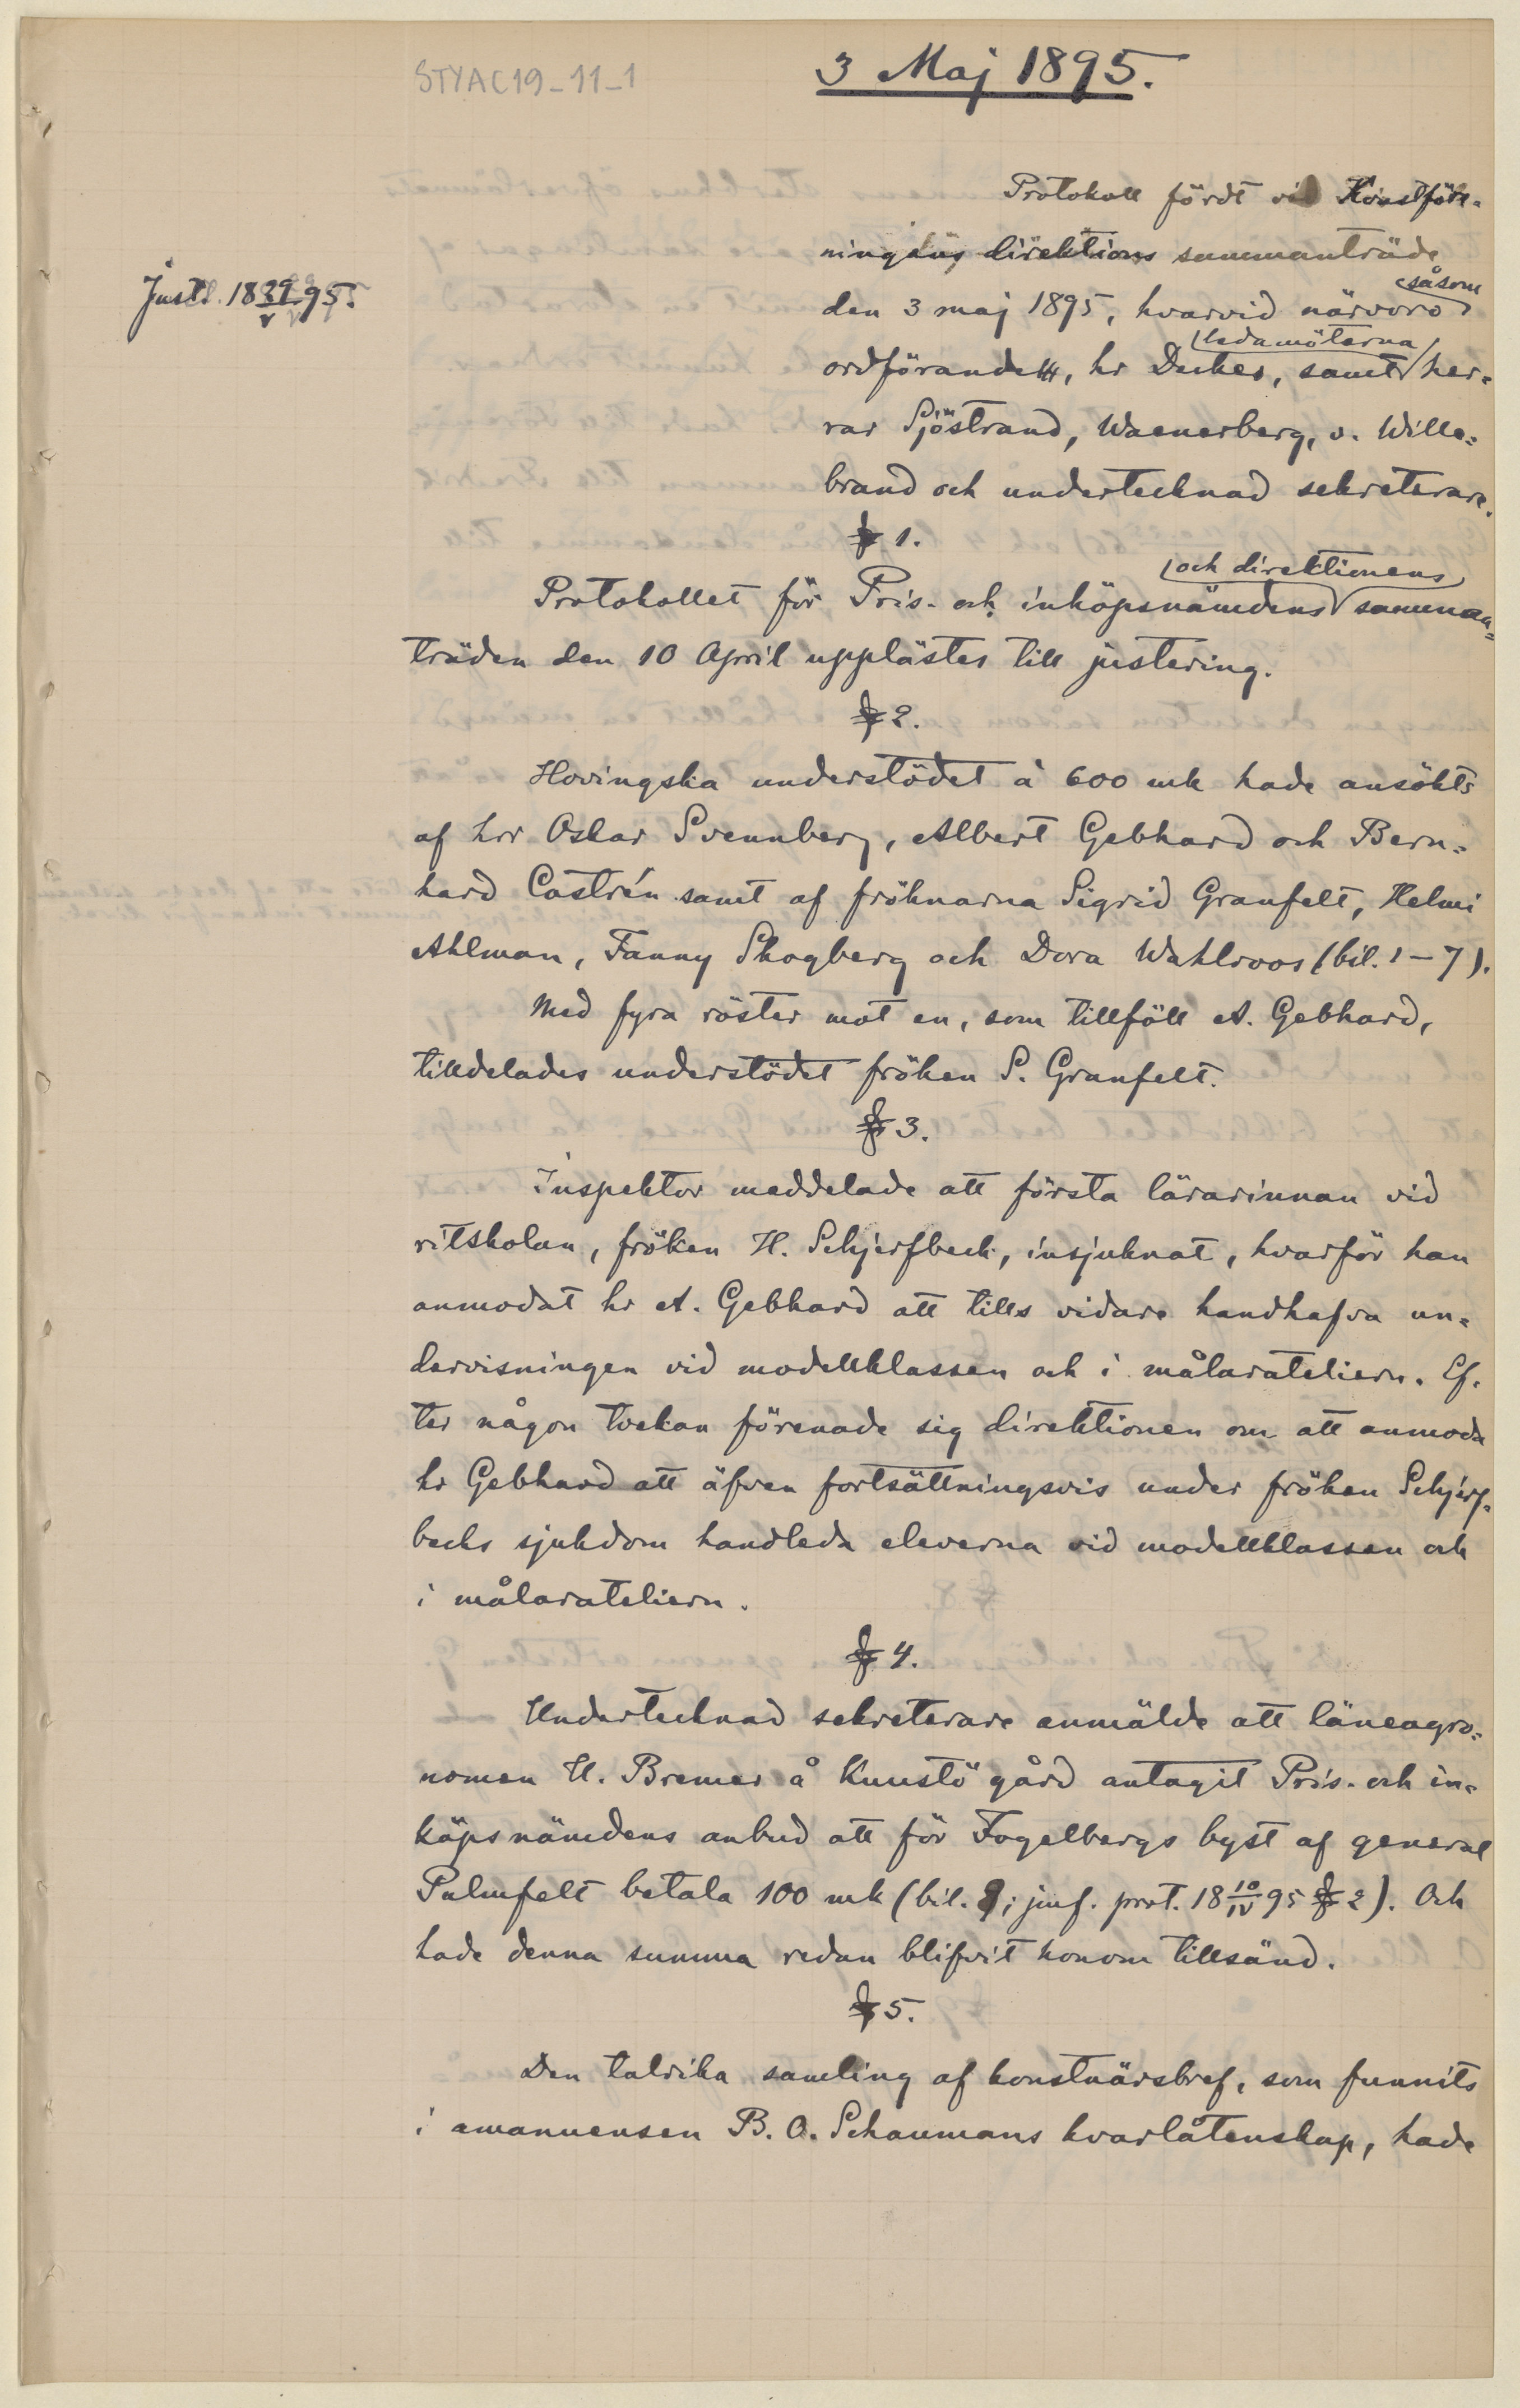 STYAC19-11-1
3 Maj 1895.
Protokoll fördt vid Konstföre-
ningens direktions sammanträde
Just. 18 29/V 95.
den 3 maj 1895, hvarvid närvoro såsom
ordförande, hr Decker, samt ledamöterna her-
rar Sjöstrand, Waenerberg, v. Wille-
brand och undertecknad sekreterare.
§ 1.
Protokollet för Pris- och inköpsnämdens och direktionens samman-
träden den 10 April upplästes till justering.
§ 2.
Hovingska understödet à 600 mk hade ansökts
af hrr Oskar Svennberg, Albert Gebhard och Bern-
hard Castrén samt af fröknarna Sigrid Granfelt, Helmi
Ahlman, Fanny Skogberg och Dora Wahlroos (bil. 1-7).
Med fyra röster mot en, som tillföll A. Gebhard,
tilldelades understödet fröken S. Granfelt.
§ 3.
Inspektor meddelade att första lärarinnan vid
ritskolan, fröken H. Schjerfbeck, insjuknat, hvarför han
anmodat hr A. Gebhard att tills vidare handhafva un-
dervisningen vid modellklassen och i målarateliern. Ef-
ter någon tvekan förenade sig direktionen om att anmoda
hr Gebhard att äfven fortsättningsvis under fröken Schjerf-
becks sjukdom handleda eleverna vid modellklassen och
i målarateliern.
§ 4.
Undertecknad sekreterare anmälde att läneagro-
nomen H. Bremer å Kuustö gård antagit Pris- och in-
köpsnämdens anbud att för Fogelbergs byst af general
Palmfelt betala 100 mk (bil. 8; jmf. prot. 18 10/IV 95 § 2). Och
hade denna summa redan blifvit honom tillsänd.
§ 5.
Den talrika samling af konstnärsbref, som funnits
i amanuensen B. O. Schaumans kvarlåtenskap, hade